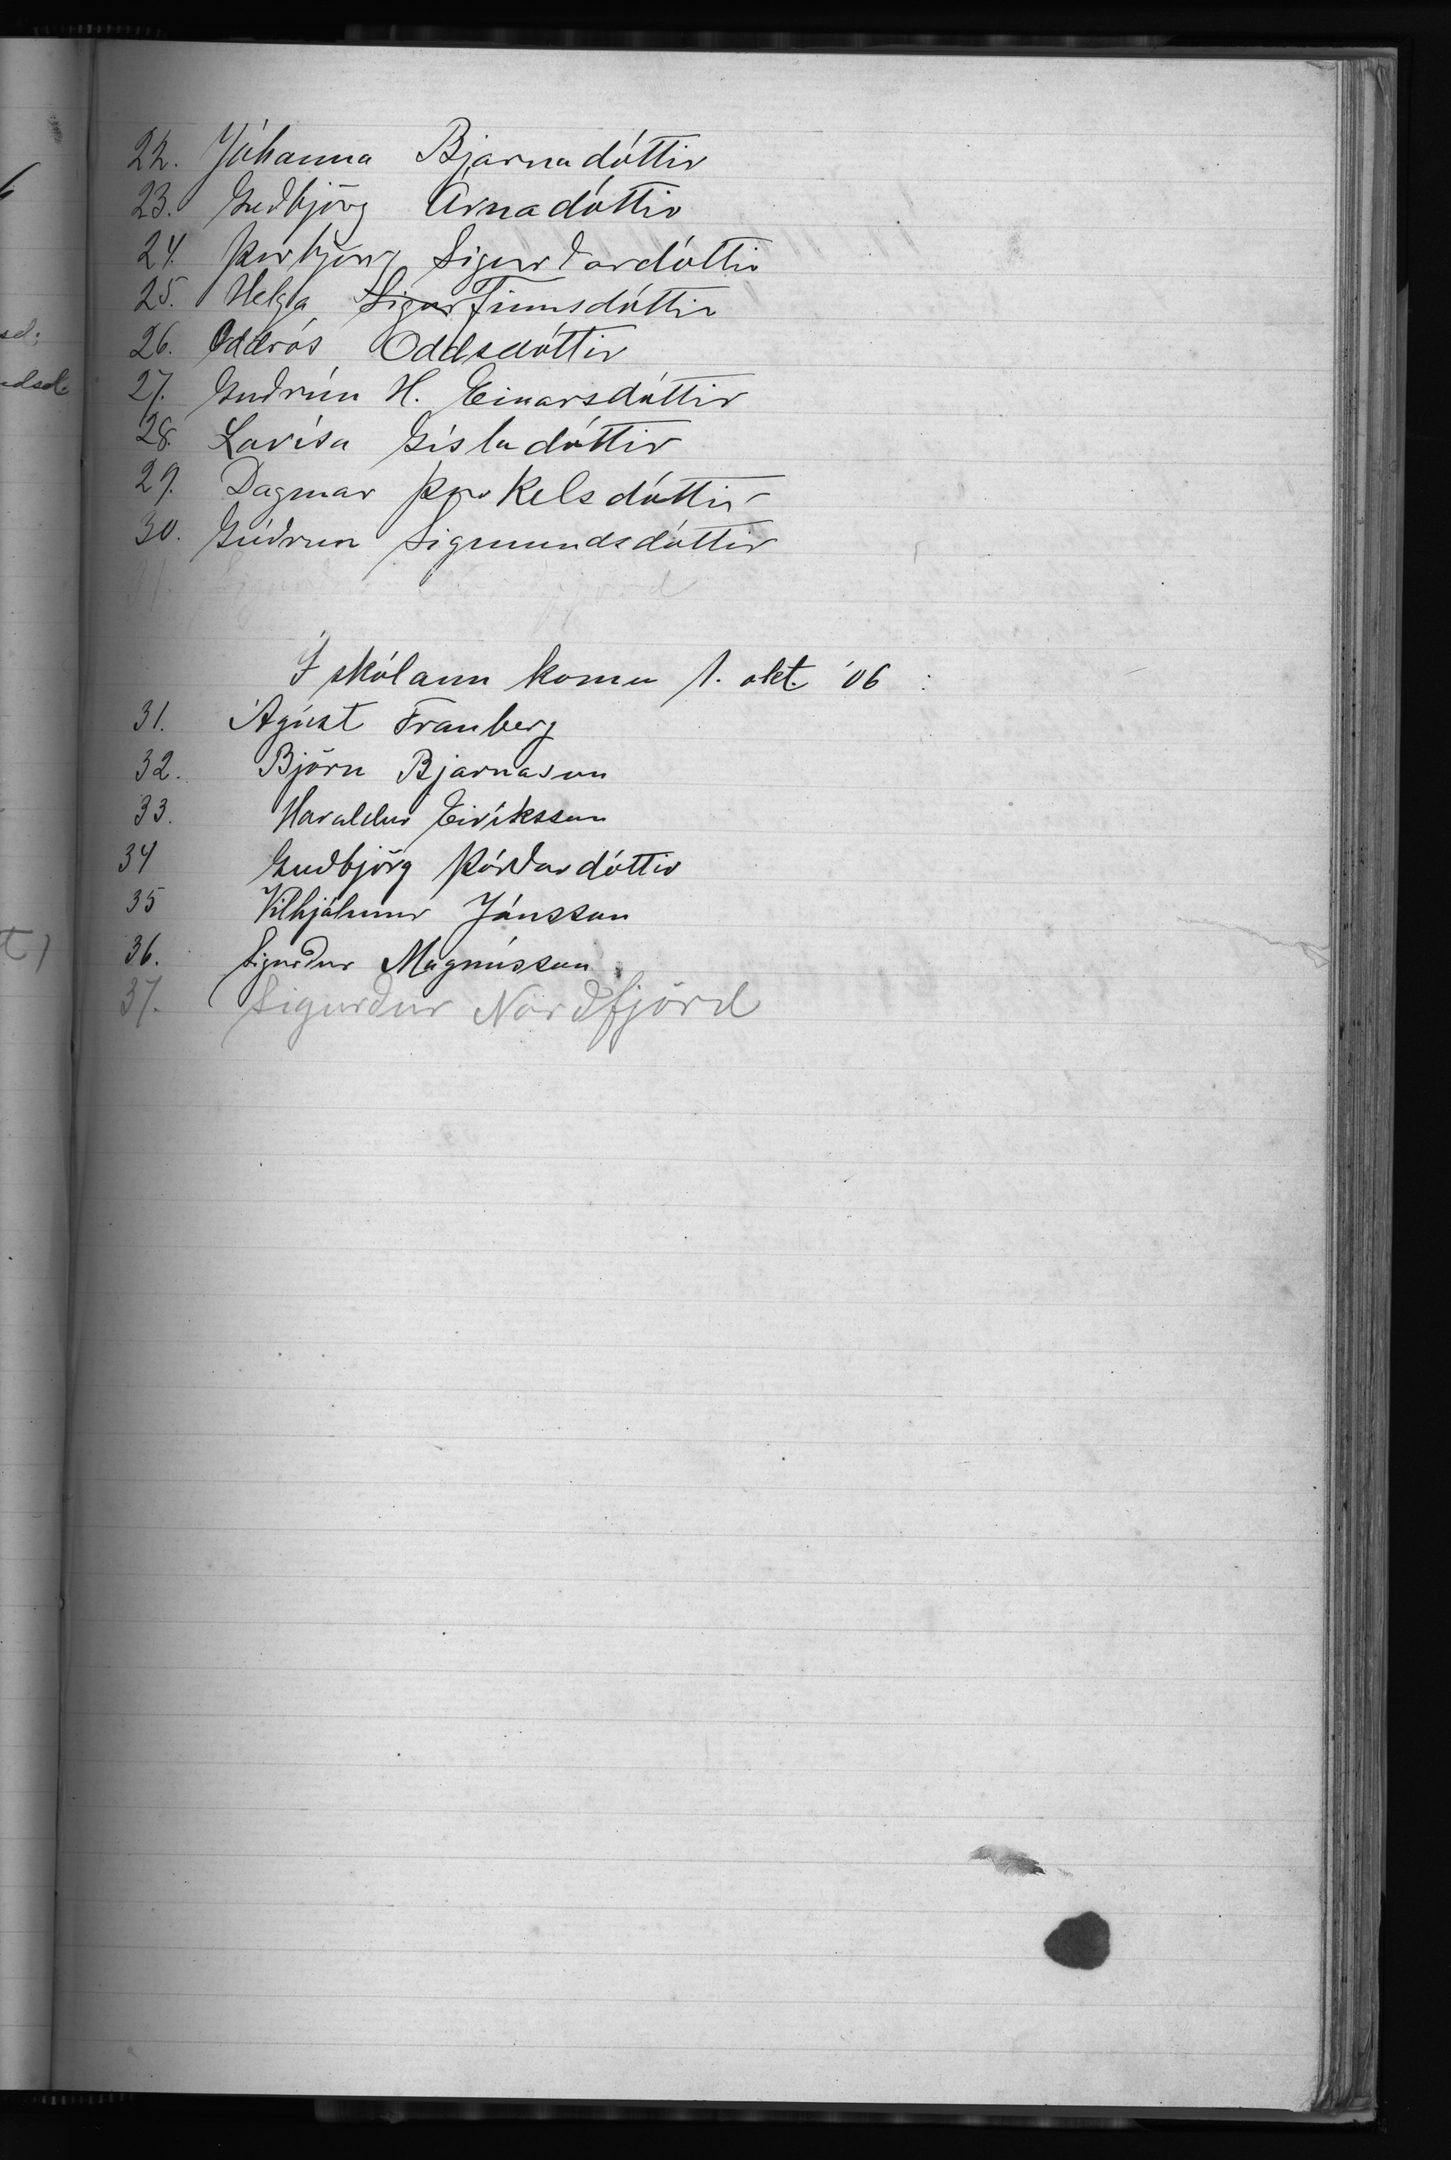 22. Jóhanna Bjarnadóttir
23. Guðbjörg Árnadóttir
24. Þorbjörg Sigurðardóttir
25. Helga Sigur Finnsdóttir
26. Oddrós Oddsdóttir
27. Guðrún H. Einarsdóttir
28. Lovísa Gísladóttir
29. Dagmar Þorkelsdóttir
30. Guðrun Sigmundsdóttir
31.
Í skólann komu 1. okt. '06 :
31. Ágúst Franberg
32. Björn Bjarnason
33. Haraldur Eiríksson
34 Guðbjörg Þórðardóttir
35 Vilhjálmur Jónsson
36. Sigurður Magnússon
37. Sigurður Norðfjörd